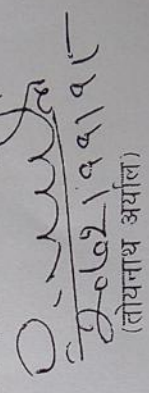 २०७२।११।१८
(तोयनाथ अर्याल)